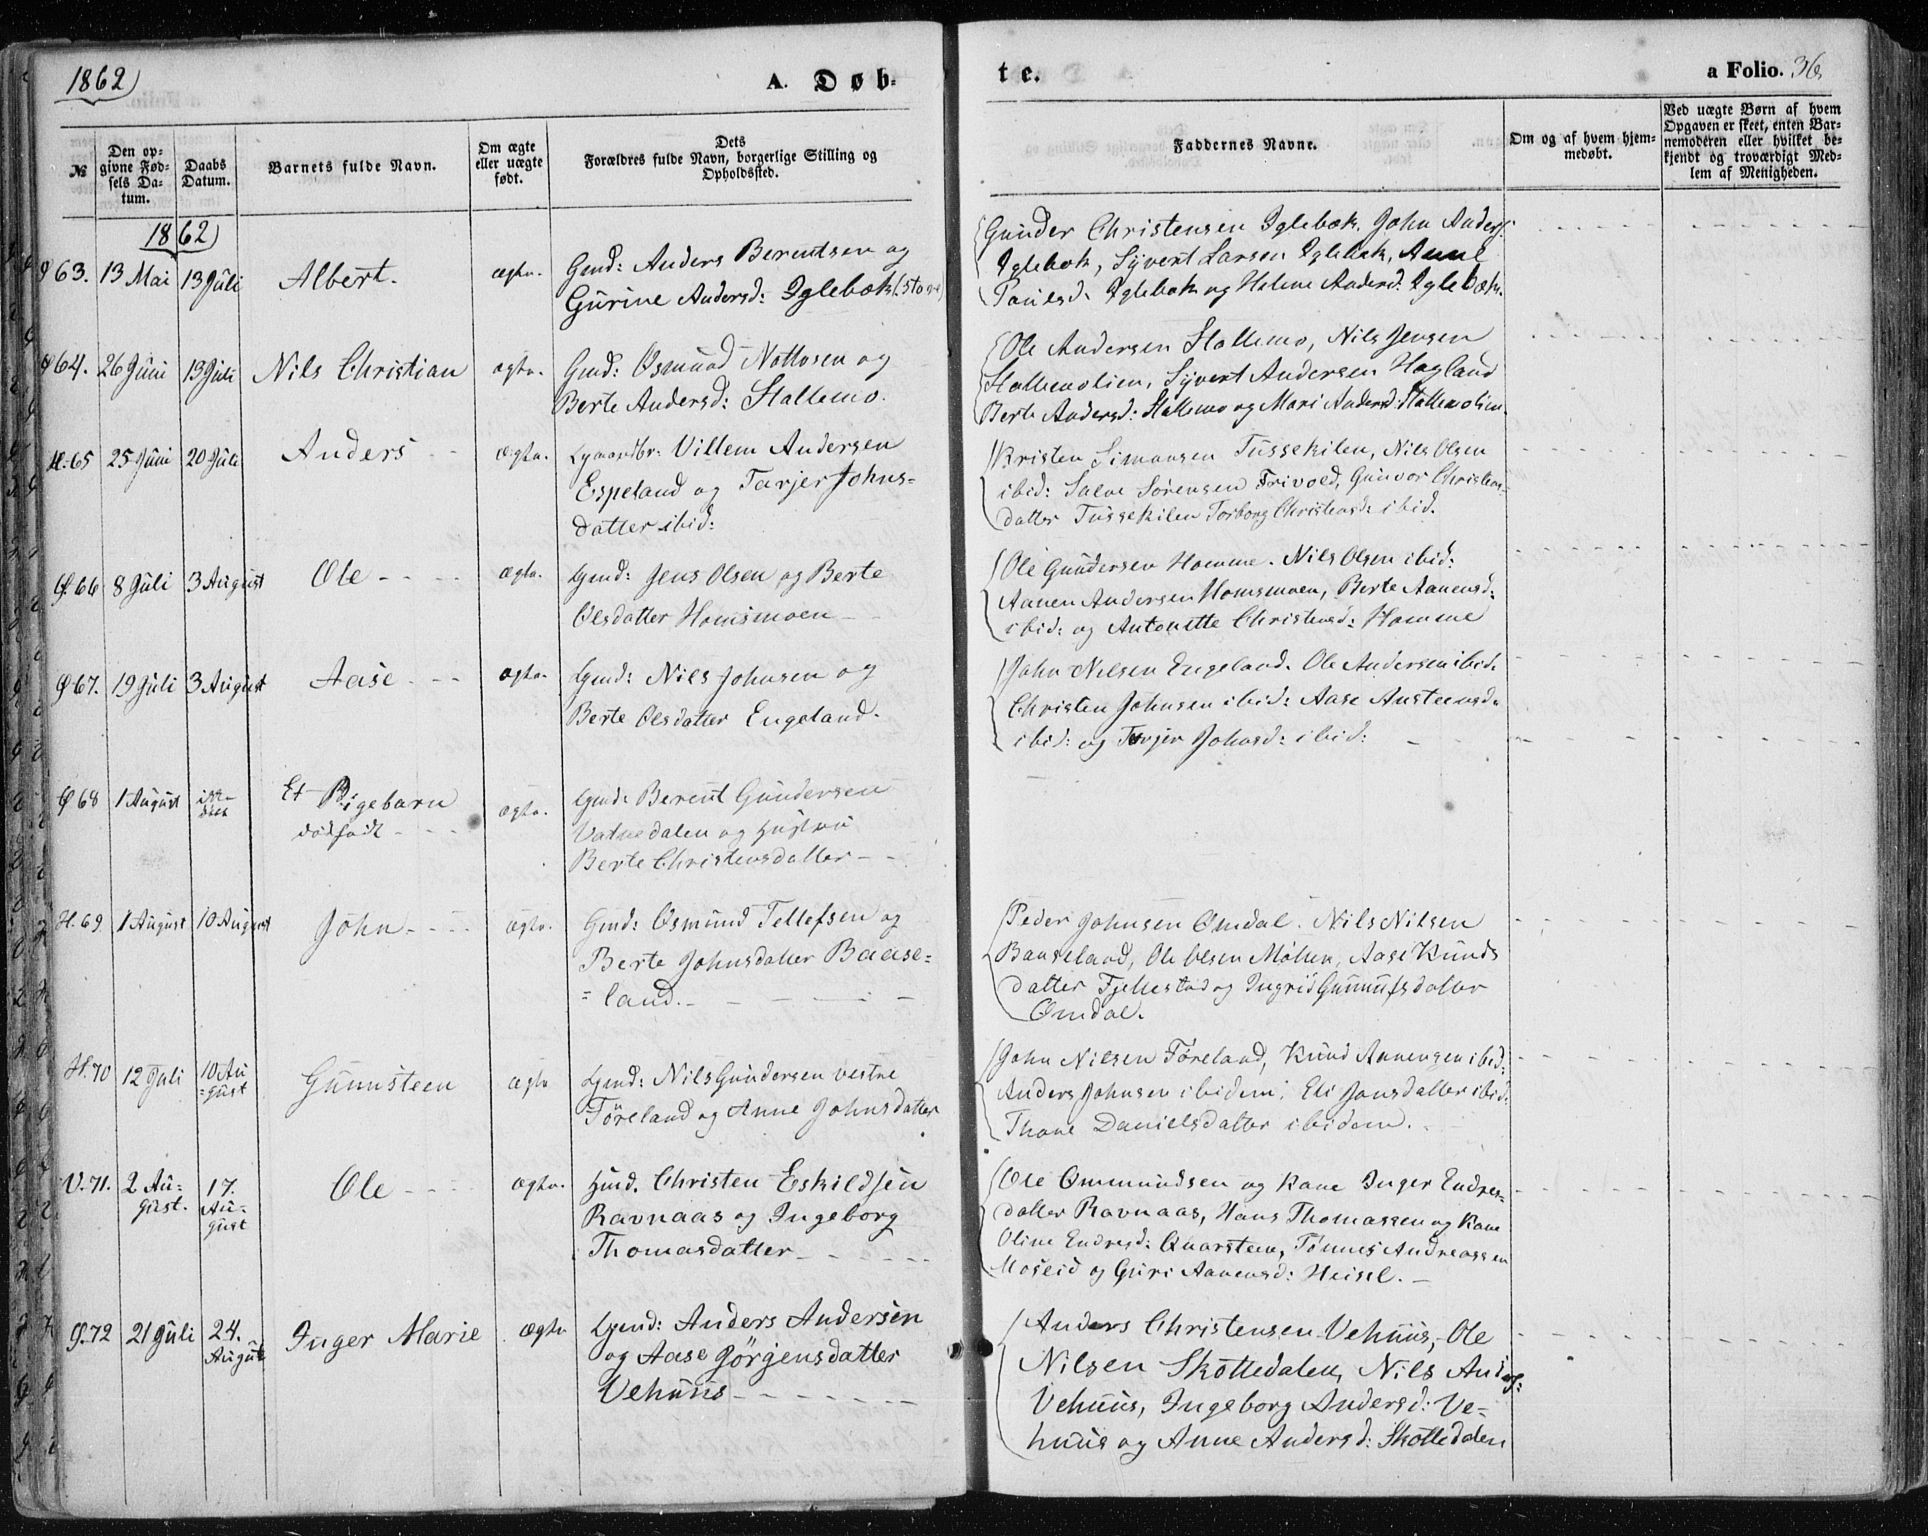 1862
A. Døb-
te.
a Folio. 36
№
Den op-
givne Fød-
sels Da-
tum.
Daabs
Datum.
Barnets fulde Navn.
Om ægte
eller uægte
født.
Dets
Forældres fulde Navn, borgerlige Stilling og
Opholdssted.
Faddernes Navne.
Om og af hvem hjem-
medøbt.
Ved uægte Børn af hvem
Opgaven er skeet, enten Bar-
nemoderen eller hvilket be-
kjendt og troværdigt Med-
lem af Menigheden.
1862
63. 13 Mai 13 Juli Albert. ægte.
Gmd: Anders Berentsen og
Gurine Andersd: Iglebæk
Gunder Christensen Iglebæk. John Anders:
Iglebæk, Syvert Larsen Iglebæk, Anne
Paulsd. Iglebæk og Helene Andersd: Iglebæk.
64. 26 Juni 13 Juli Nils Christian ægte.
Gmd: Osmund Nottosen og
Berte Andersd: Stallemo.
Ole Andersen Stallemo, Nils Jensen
Stallemolien, Syvert Andersen Hagland
Berte Andersd: Stallemo og Mari Andersd: Stallemolien.
H. 65 25 Juni 20 Juli Anders ægte.
Villem Andersen
Espeland og Tarjer Johns-
datter ibid:
Kristen Simonsen Tussekilen, Nils Olsen
ibid: Salve Sørensen Frivold, Gunvor Christens-
datter Tussekilen Torborg Christensd: ibid.
66 8 Juli 3 August Ole ægte.
Gmd: Jens Olsen og Berte
Olsdatter Homsmoen
Ole Gundersen Homme. Nils Olsen ibid:
Aanen Andersen Homsmoen, Berte Aanensd:
ibid: og Antonette Christensd: Homme
67. 19 Juli 3 August Aase ægte.
Gmd: Nils Johnsen og
Berte Olsdatter Engeland.
John Nilsen Engeland. Ole Andersen ibid.
Christen Johnsen ibid: Aase Austeensd.
ibid: og Tarjer Johnsd: ibid:
68 1 August Et Pigebarn ægte.
dødfødt
Gmd: Berent Gundersen
Vatnedalen og Hustru
Berte Christensdatter
H. 69 1 August 10 August John ægte.
Gmd: Osmund Tellefsen og
Berte Johnsdatter Baase-
=land.
Peder Johnsen Omdal. Nils Nilsen
Baaseland, Ole Olsen Møllen, Aase Knuds
datter Fjellestad og Ingrid Gunnufsdatter
Omdal.
H. 70 12 Juli 10 Au
=gust Gunnsteen ægte
Gmd: Nils Gundersen vestre
Føreland og Anne Johnsdatter
John Nilsen Føreland, Knud Aanensen ibid:
Anders Johnsen ibidem, Eli Jonsdatter ibid:
Thone Danielsdatter ibidem.
V. 71. 2 Au-
gust. 17.
Au-
gust Ole ægte.
Hmd. Christen Eskildsen
Ravnaas og Ingeborg
Thomasdatter
Ole Ommundsen og Kone Inger Endres-
datter Ravnaas, Hans Thomassen og Kone
Oline Endresd: Qvarstein, Tønnes Andreassen
Moseid og Guri Aanensd: Heisel.
72 21 Juli 24.
August Inger Marie ægte
Gmd: Anders Andersen
og Aase Jørgensdatter
Vehuus
Anders Christensen Vehuus, Ole
Nilsen Skottedalen, Nils Anders:
Vehuus, Ingeborg Andersd: Ve-
huus og Anne Andersd: Skottedalen